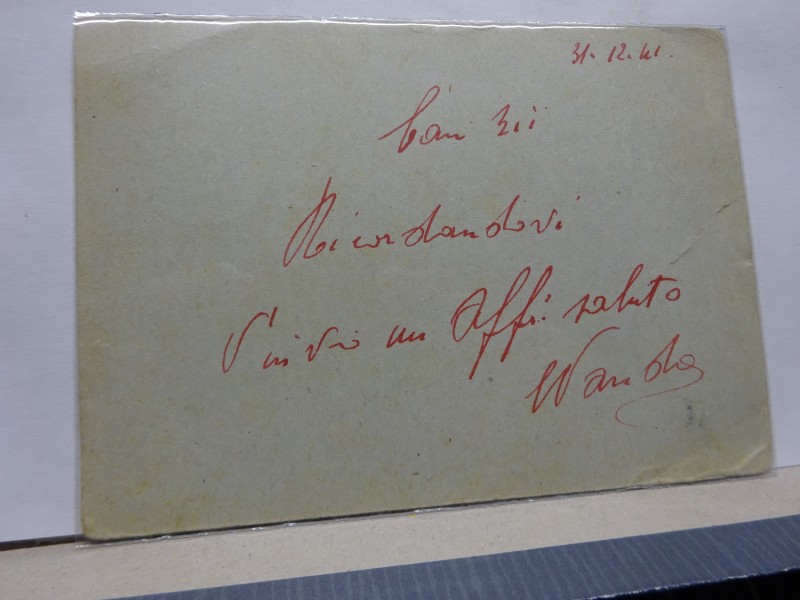 31-12-41.
Cari zii
Ricordandovi
V'invio un Aff: saluto
Wanda